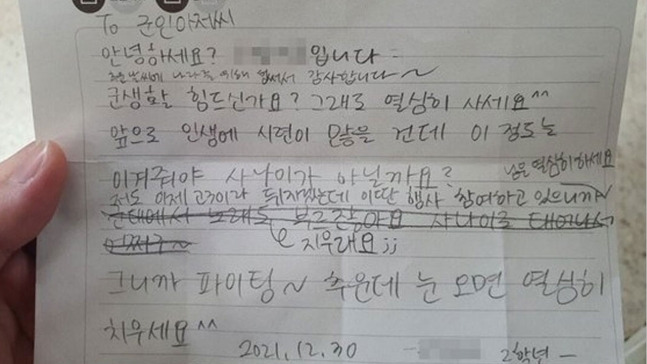 To 군인아저씨
안녕하세요? 입니다
추운날씨에 나라를 위해 힘써서 감사합니다~
군생활 힘드신가요? 그래도 열심히 사세요^^
앞으로 인생에 시련이 많을 건데 이 정도는
이겨줘야 사나이가 아닐까요?
님은 열심히 하세요
저도 이제 고3이라 뒤지겠는데 이딴 행사 참여하고 있으니까~
군대에서 노래도 부르잖아요 사나이로 태어나서
어쩌구~
지우래요;;
그니까 파이팅~ 추운데 눈 오면 열심히
치우세요^^
2021.12.30 2학년